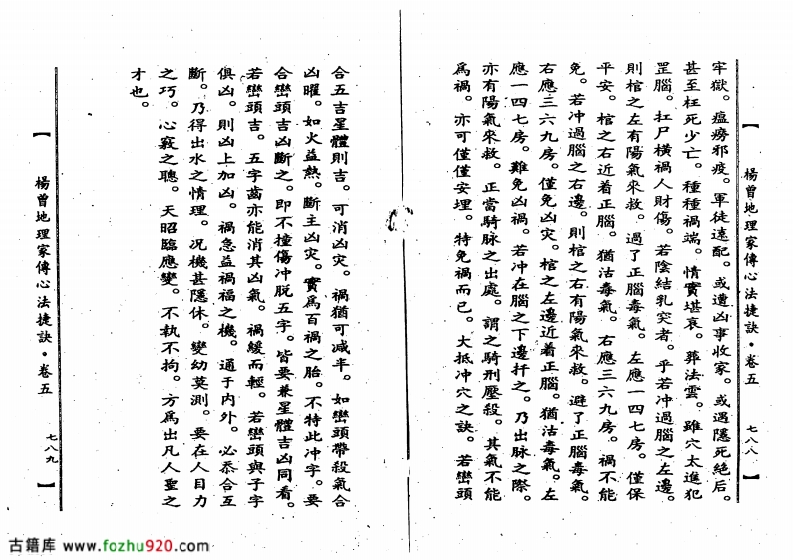 【 楊曾地理家傳心法捷訣・卷五 七八八 】
牢獄。瘟癆邪疫。軍徒遠配。或遭凶事收家。或遇隱死絕后。
甚至枉死少亡。種種禍端。情實堪哀。葬法雲。雖穴太進犯
罡腦。扛尸橫禍人財傷。若陰結乳突者。乎若冲過腦之左邊。
則棺之左有陽氣來救。過了正腦毒氣。左應一四七房。僅保
平安。棺之右近着正腦。猶沽毒氣。右應三六九房。禍不能
免。若冲過腦之右邊。則棺之右有陽氣來救。避了正腦毒氣。
右應三六九房。僅免凶灾。棺之左邊近着正腦。猶沽毒氣。左
應一四七房。難免凶禍。若冲在腦之下邊扦之。乃出脉之際。
亦有陽氣來救。正當騎脉之出處。謂之騎刑壓殺。其氣不能
爲禍。亦可僅僅安埋。特免禍而已。大抵冲穴之訣。若巒頭
合五吉星體則吉。可消凶灾。禍猶可减半。如巒頭帶殺氣合
凶曜。如火益熱。斷主凶灾。實爲百禍之胎。不特此冲字。要
合巒頭吉凶斷之。即不撞傷冲脱五字。皆要兼星體吉凶同看。
若巒頭吉。五字葢亦能消其凶氣。禍緩而輕。若巒頭與子字
俱凶。則凶上加凶。禍急益禍福之機。通于内外。必忝合互
斷。乃得出水之情理。况機甚隱休。變幼莫測。要在人目力
之巧。心竅之聰。天昭臨應變。不執不拘。方爲出凡人聖之
才也。
【 楊曾地理家傳心法捷訣・卷五 七八九 】
古籍库 www.fozhu920.com